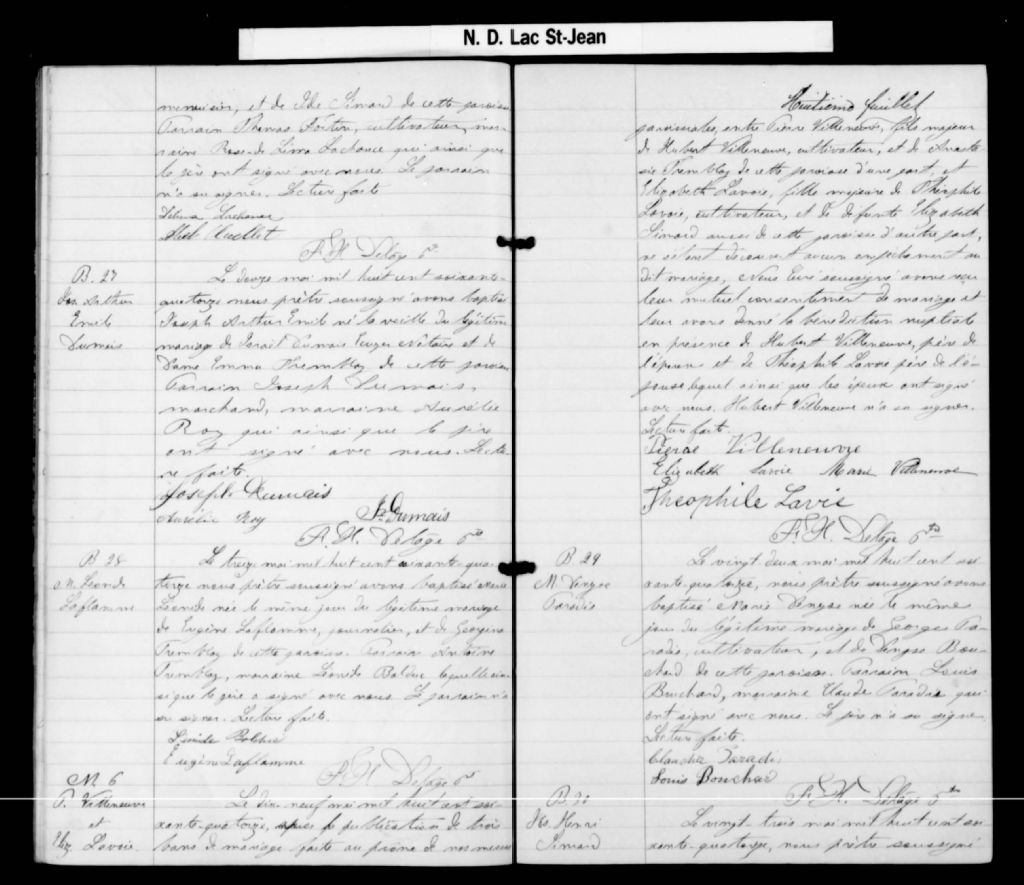 N. D. Lac St-Jean
menuisier, et de Ide Simard de cette paroisse
Parrain Thomas Fortin, cultivateur, mar-
raine Rose-de Lima Lachance qui ainsi que
le père ont signé avec nous. Le parrain
n'a su signer. Lecture faite
Delima Lachance
Abel Ouellet
F. X. Delage Ptre
B. 27
Jos. Arthur
Emile
Dumais
Le douze mai mil huit cent soixante-
quatorze nous prêtre soussigné avons baptisé
Joseph Arthur Emile né la veille du légitime
mariage de Israël Dumais Notaire et de
Dame Emma Tremblay de cette paroisse
Parrain Joseph Dumais,
marchand, marraine Aurélie
Roy qui ainsi que le père
ont signé avec nous. Lectu-
re faite.
Joseph Dumais
Aurélie Roy Is Dumais
F. X. Delage Ptre
B 28
M. Léonide
Laflamme
Le treize mai mil huit cent soixante-qua-
torze nous prêtre soussigné avons baptisé Marie
Léonide née le même jour du légitime mariage
de Eugène Laflamme, journalier, et de Georgina
Tremblay de cette paroisse. Parrain Antoine
Tremblay, marraine Léonide Bolduc laquelle ain-
si que le père a signé avec nous. Le parrain n'a
su signer. Lecture faite.
Léonide Bolduc
Eugène Laflamme
F. X. Delage Ptre
M 6
P. Villeneuve
et
Eliz. Lavoie
Le dix neuf mai mil huit cent soi-
xante-quatorze, après la publication de trois
bans de mariage faite au prône de nos messes
Huitième feuillet
paroissiales, entre Pierre Villeneuve, fils majeur
de Hubert Villeneuve, cultivateur, et de Anasta-
sie Tremblay de cette paroisse d'une part, et
Elizabeth Lavoie, fille majeure de Théophile
Lavoie, cultivateur, et de défunte Elizabeth
Simard aussi de cette paroisse d'autre part,
ne s'étant découvert aucun empêchement au
dit mariage, Nous Curé soussigné avons reçu
leur mutuel consentement de mariage et
leur avons donné la bénédiction nuptiale
en présence de Hubert Villeneuve, père de
l'époux et de Théophile Lavoie père de l'é-
pouse lequel ainsi que les époux ont signé
avec nous. Hubert Villeneuve n'a su signer.
Lecture faite.
Pierre Villeneuvve
Elizabeth Lavoie Marie Villeneuve
Théophile Lavie
F. X. Delage Ptre
B 29
M. Vengee
Paradis
Le vingt deux mai mil huit cent soi-
xante-quatorze, nous prêtre soussigné avons
baptisé Marie Vengee née le même
jour du légitime mariage de Georges Pa-
radis, cultivateur, et de Vengee Bou-
chard de cette paroisse. Parrain Louis
Bouchard, marraine Claudia Paradis qui
ont signé avec nous. Le père n'a su signer
Lecture faite.
Paradis
Louis Bouchar
F. X. Delage Ptre
B. 30
Jos. Henri
Simard
Le vingt trois mai mil huit cent soi-
xante-quatorze, nous prêtre soussigné